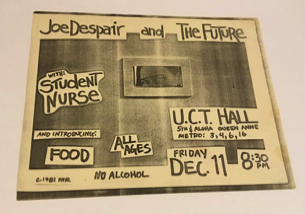 Joe Despair and The Future
WITH:
STUDENT
NURSE
U.C.T. HALL
5TH & ALOHA QUEEN ANNE
METRO: 3, 4, 6, 16
AND INTRODUCING:
FOOD
ALL
AGES
FRIDAY
DEC. 11
8:30
PM
NO ALCOHOL